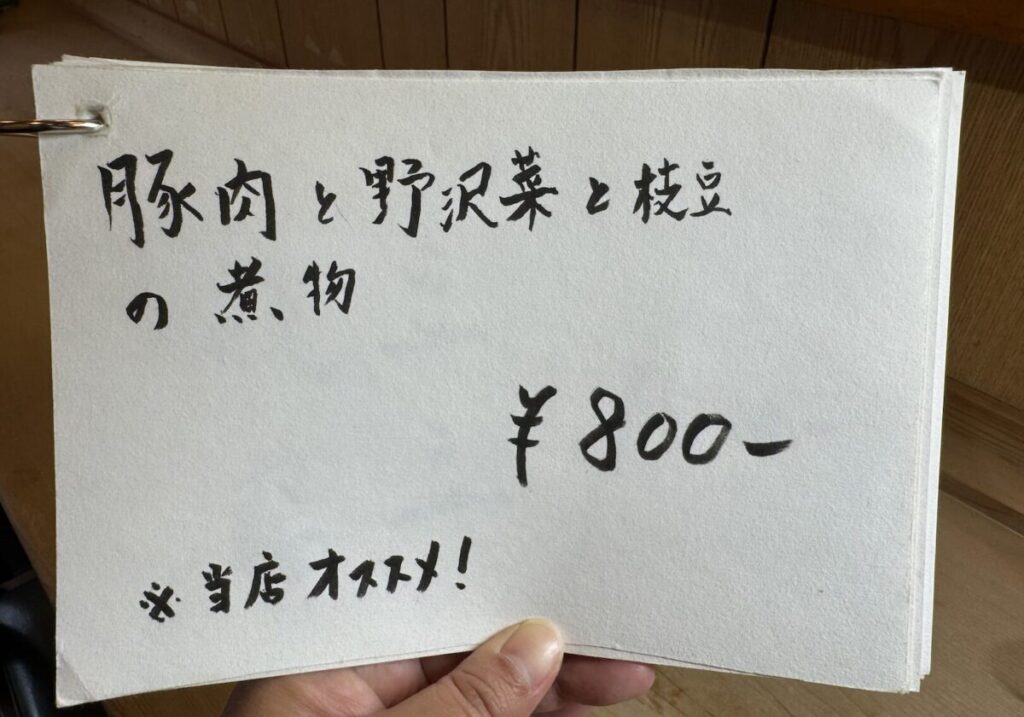 豚肉と野沢菜と枝豆
の煮物
¥800-
※当店オススメ!